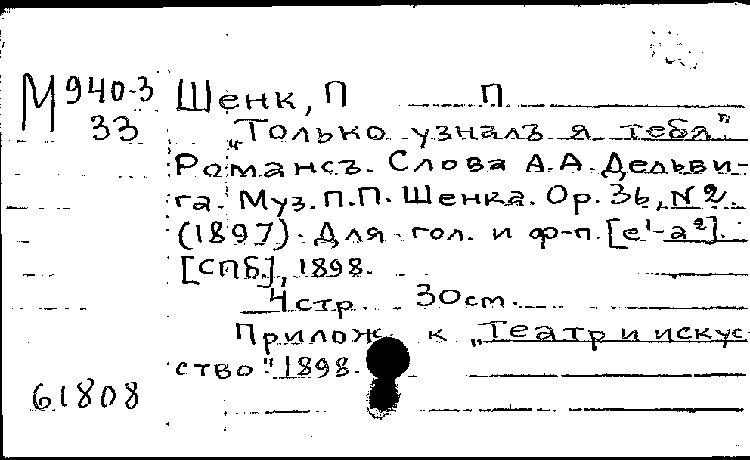 М 940-3
33
Шенк, П П
„Только узналъ я тебя"
Романсъ. Слова А.А. Дельви-
га. Муз. П.П. Шенка. Ор. 36, N 2.
(1897). Для гол. и ф-п. [e¹-a²].
[СПб.], 1898.
4 стр. 30 cm.
Прилож. к „Театр и искус-
ство" 1898.
61808